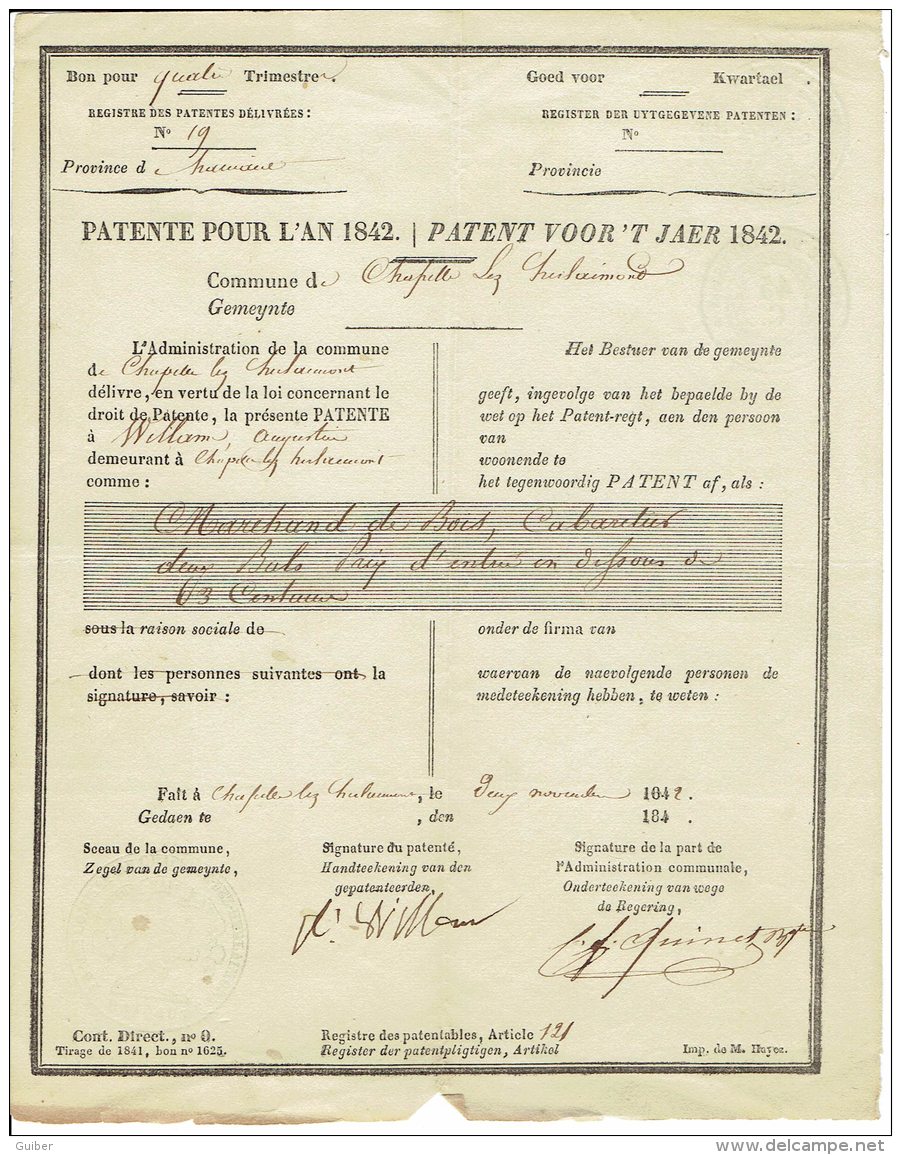 Bon pour quatre Trimestres.
Goed voor Kwartael .
REGISTRE DES PATENTES DÉLIVRÉES :
REGISTER DER UYTGEGEVENE PATENTEN :
No 19
No
Province de
Provincie
PATENTE POUR L'AN 1842. | PATENT VOOR 'T JAER 1842.
Commune de Chapelle Lez herlaimont
Gemeynte
L'Administration de la commune
de Chapelle lez herlaimont
délivre, en vertu de la loi concernant le
droit de Patente, la présente PATENTE
à Willam, augustin
demeurant à Chapelle lez herlaimont
comme :
Het Bestuer van de gemeynte
geeft, ingevolge van het bepaelde by de
wet op het Patent-regt, aen den persoon
van
woonende te
het tegenwoordig PATENT af, als :
Marchand de Bois, Cabaretier
deux Bals Prix d'entrée en dessous de
63 Centimes
sous la raison sociale de
onder de firma van
dont les personnes suivantes ont la
signature, savoir :
waervan de naevolgende personen de
medeteekening hebben, te weten :
Fait à Chapelle lez herlaimont, le Deux novembre 1842.
Gedaen te , den 184 .
Sceau de la commune,
Zegel van de gemeynte,
Signature du patenté,
Handteekening van den
gepatenteerden,
Signature de la part de
l'Administration communale,
Onderteekening van wege
de Regering,
Willam
Quinet
Cont. Direct., no 9.
Tirage de 1841, bon no 1625.
Registre des patentables, Article 121
Register der patentpligtigen, Artikel
Imp. de M. Hayez.
Guiber
www.delcampe.net